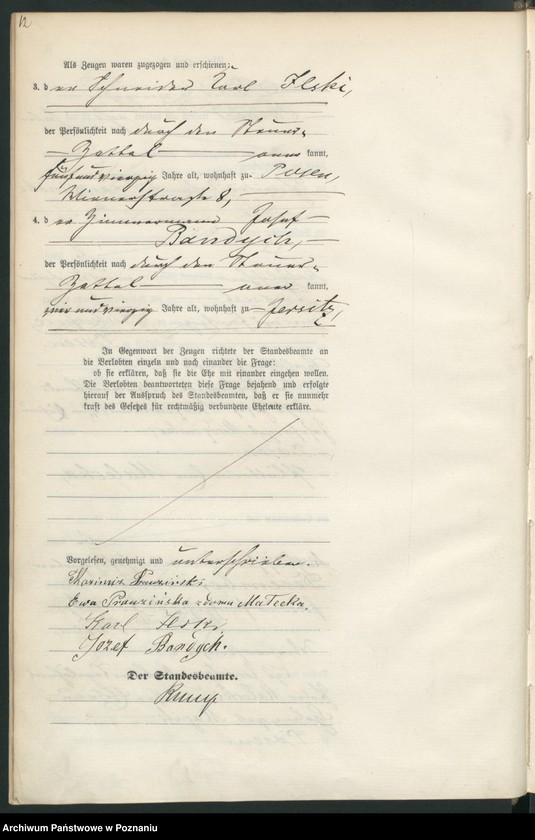 12
Als Zeugen waren zugezogen und erschienen:
3. der Schneider Karl Ilski,
der Persönlichkeit nach durch den Steuer-
Zettel anerkannt,
fünfundvierzig Jahre alt, wohnhaft zu Posen,
Wienerstraße 8,
4. der Zimmermann Josef
Bandych,
der Persönlichkeit nach durch den Steuer-
Zettel anerkannt,
vierundvierzig Jahre alt, wohnhaft zu Jersitz,
In Gegenwart der Zeugen richtete der Standesbeamte an
die Verlobten einzeln und nach einander die Frage:
ob sie erklären, daß sie die Ehe mit einander eingehen wollen.
Die Verlobten beantworteten diese Frage bejahend und erfolgte
hierauf der Ausspruch des Standesbeamten, daß er sie nunmehr
kraft des Gesetzes für rechtmäßig verbundene Eheleute erkläre.
Vorgelesen, genehmigt und unterschrieben.
Ewa Pranzińska zdomu Małecka.
Karl Ilski,
Jozef Bandych.
Der Standesbeamte.
Archiwum Państwowe w Poznaniu